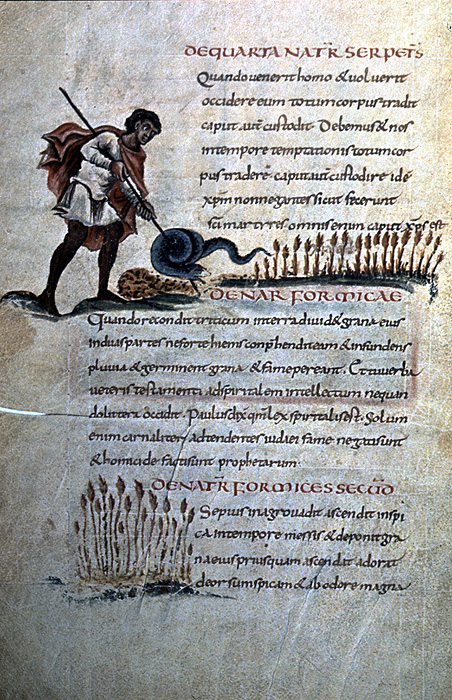 DEQUARTA NATR SERPETIS
Quando venerit homo & voluerit
occidere eum totum corpus tradit
caput aut custodit Debemus & nos
in tempore temptationis totum cor
pus tradere caput aut custodire ide
xpm non negantes sicut fecerunt
sci martyres omnis enim caput xps est
DE NAR FORMICAE
Quando recondit triticum in terra dividi& grana eius
in duas partes ne forte hiems conphendit eam & infundens
pluvia & germinent grana & fame pereant. Et tu verba
veteris testamenti ad spiritalem intellectum ne quan
do littera occidit. Paulus dx qm lex spiritalis est. Solum
enim carnaliter adtendentes iudaei fame negati sunt
& homicide facti sunt prophetarum
DE NATR FORMICES SECUD
Sepius in agro vadit ascendit in spi
ca in tempore messis & deponit gra
na eius priusquam ascendat adorat
deorsum spicam & ab odore magna